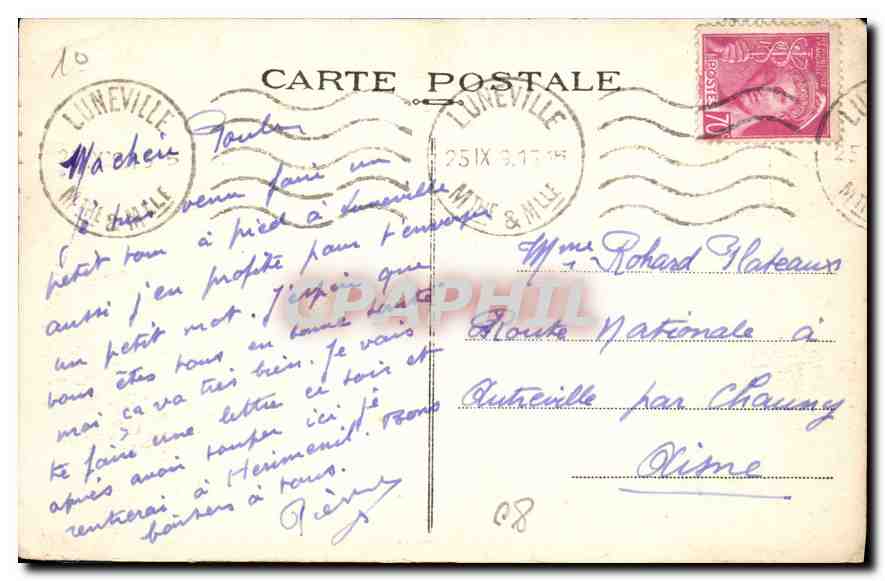 10
CARTE POSTALE
LUNEVILLE
MTHE & MLLE
LUNEVILLE
25 IX
MTHE & MLLE
POSTES
70
Ma chérie
Je suis venu faire un
petit tour à pied à Luneville
aussi j'en profite pour t'envoyer
un petit mot. J'espère que
vous êtes tous en bonne santé
moi ça va très bien. Je vais
te faire une lettre ce soir et
après avoir souper ici je
rentrerai à Herimenil. Bons
baisers à tous.
Pierre
Mme Rohard Plateaux
Route Nationale à
Autreville par Chauny
Aisne
CPAPHIL
C8